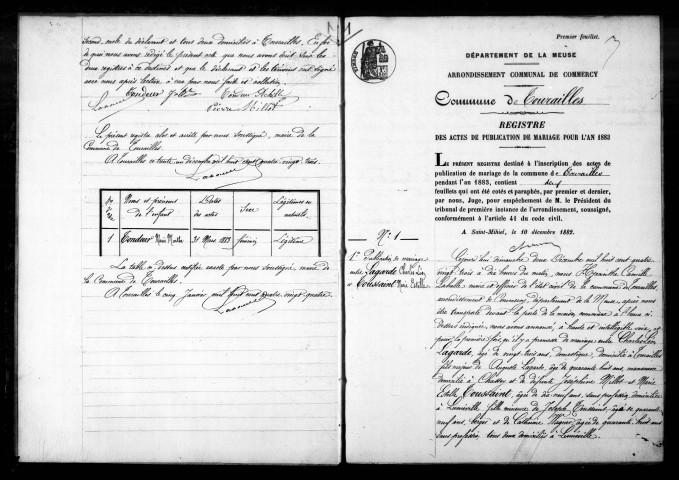 second, oncle du déclarant et tous deux domiciliés à Tourailles. En foi
de quoi nous avons rédigé le présent acte que nous avons inscrit sur les
deux registres à ce destinés et que le déclarant et les témoins ont signé
avec nous après lecture à eux par nous faite et collation.
Tondeur Jules Tondeur Achille
Labaulle Pierre Millot
Le présent registre clos et arrêté par nous soussigné, maire de la
Commune de Tourailles.
A Tourailles ce trente un décembre mil huit cent quatre vingt trois.
Noms et prénoms de l'enfant Dates des actes Sexe Légitimes ou naturels
1 Tondeur Marie Marthe 31 Mars 1883 féminin Légitime
La table ci dessus certifiée exacte par nous soussigné, maire de
la Commune de Tourailles.
A Tourailles le cinq Janvier mil huit cent quatre vingt quatre.
Premier feuillet.
DÉPARTEMENT DE LA MEUSE
ARRONDISSEMENT COMMUNAL DE COMMERCY
Commune de Tourailles
REGISTRE
DES ACTES DE PUBLICATION DE MARIAGE POUR L'AN 1883
LE PRÉSENT REGISTRE destiné à l'inscription des actes de
publication de mariage de la commune de Tourailles
pendant l'an 1883, contient deux
feuillets qui ont été cotés et paraphés, par premier et dernier,
par nous, Juge, pour empêchement de M. le Président du
tribunal de première instance de l'arrondissement, soussigné,
conformément à l'article 41 du code civil.
A Saint-Mihiel, le 10 décembre 1882.
N° 1
1re Publication de mariage
entre Lagarde Charles Léon
et Toussaint Marie Estelle
Cejourd'hui dimanche deux Décembre mil huit cent quatre
vingt trois à dix heures du matin, nous Hyacinthe Camille
Labaulle maire et officier de l'état civil de la commune de Tourailles
arrondissement de Commercy, département de la Meuse, après nous
être transporté devant la porte de la maison commune à l'heure ci
dessus indiquée, nous avons annoncé, à haute et intelligible voix, et
pour la première fois, qu'il y a promesse de mariage entre Charles Léon
Lagarde, âgé de vingt trois ans, domestique, domicilié à Tourailles
fils majeur de Auguste Lagarde, âgé de quarante huit ans, manœuvre
domicilié à Chassey et de défunte Joséphine Millot et Marie
Estelle Toussaint, âgée de dix neuf ans, sans profession, domiciliée
à Lunéville fille mineure de Joseph Toussaint, âgé de quarante
neuf ans, berger et de Catherine Wagner âgée de quarante huit ans
sans profession, tous deux domiciliés à Lunéville.